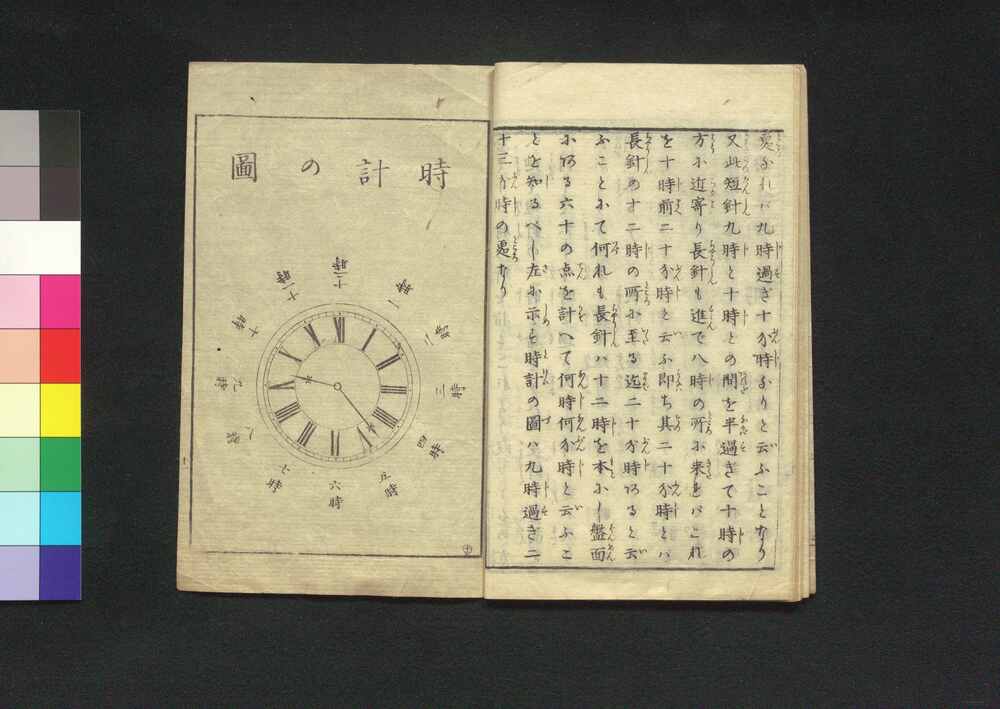 爰なれバ九時過ぎ十分時なりと云ふことなり
又此短針九時と十時との間を半過ぎて十時の
方に近寄り長針も進て八時の所に来ればこれ
を十時前二十分時と云ふ即ち其二十分時とハ
長針の十二時の所に至る迄二十分時あると云
ふことにて何れも長針ハ十二時を本にし盤面
にある六十の点を計へて何時何分時と云ふこ
とを知るべし左に示す時計の圖ハ九時過ぎ二
十三分時の處なり
時計の圖
十二時
一時
二時
三時
四時
五時
六時
七時
八時
九時
十時
十一時